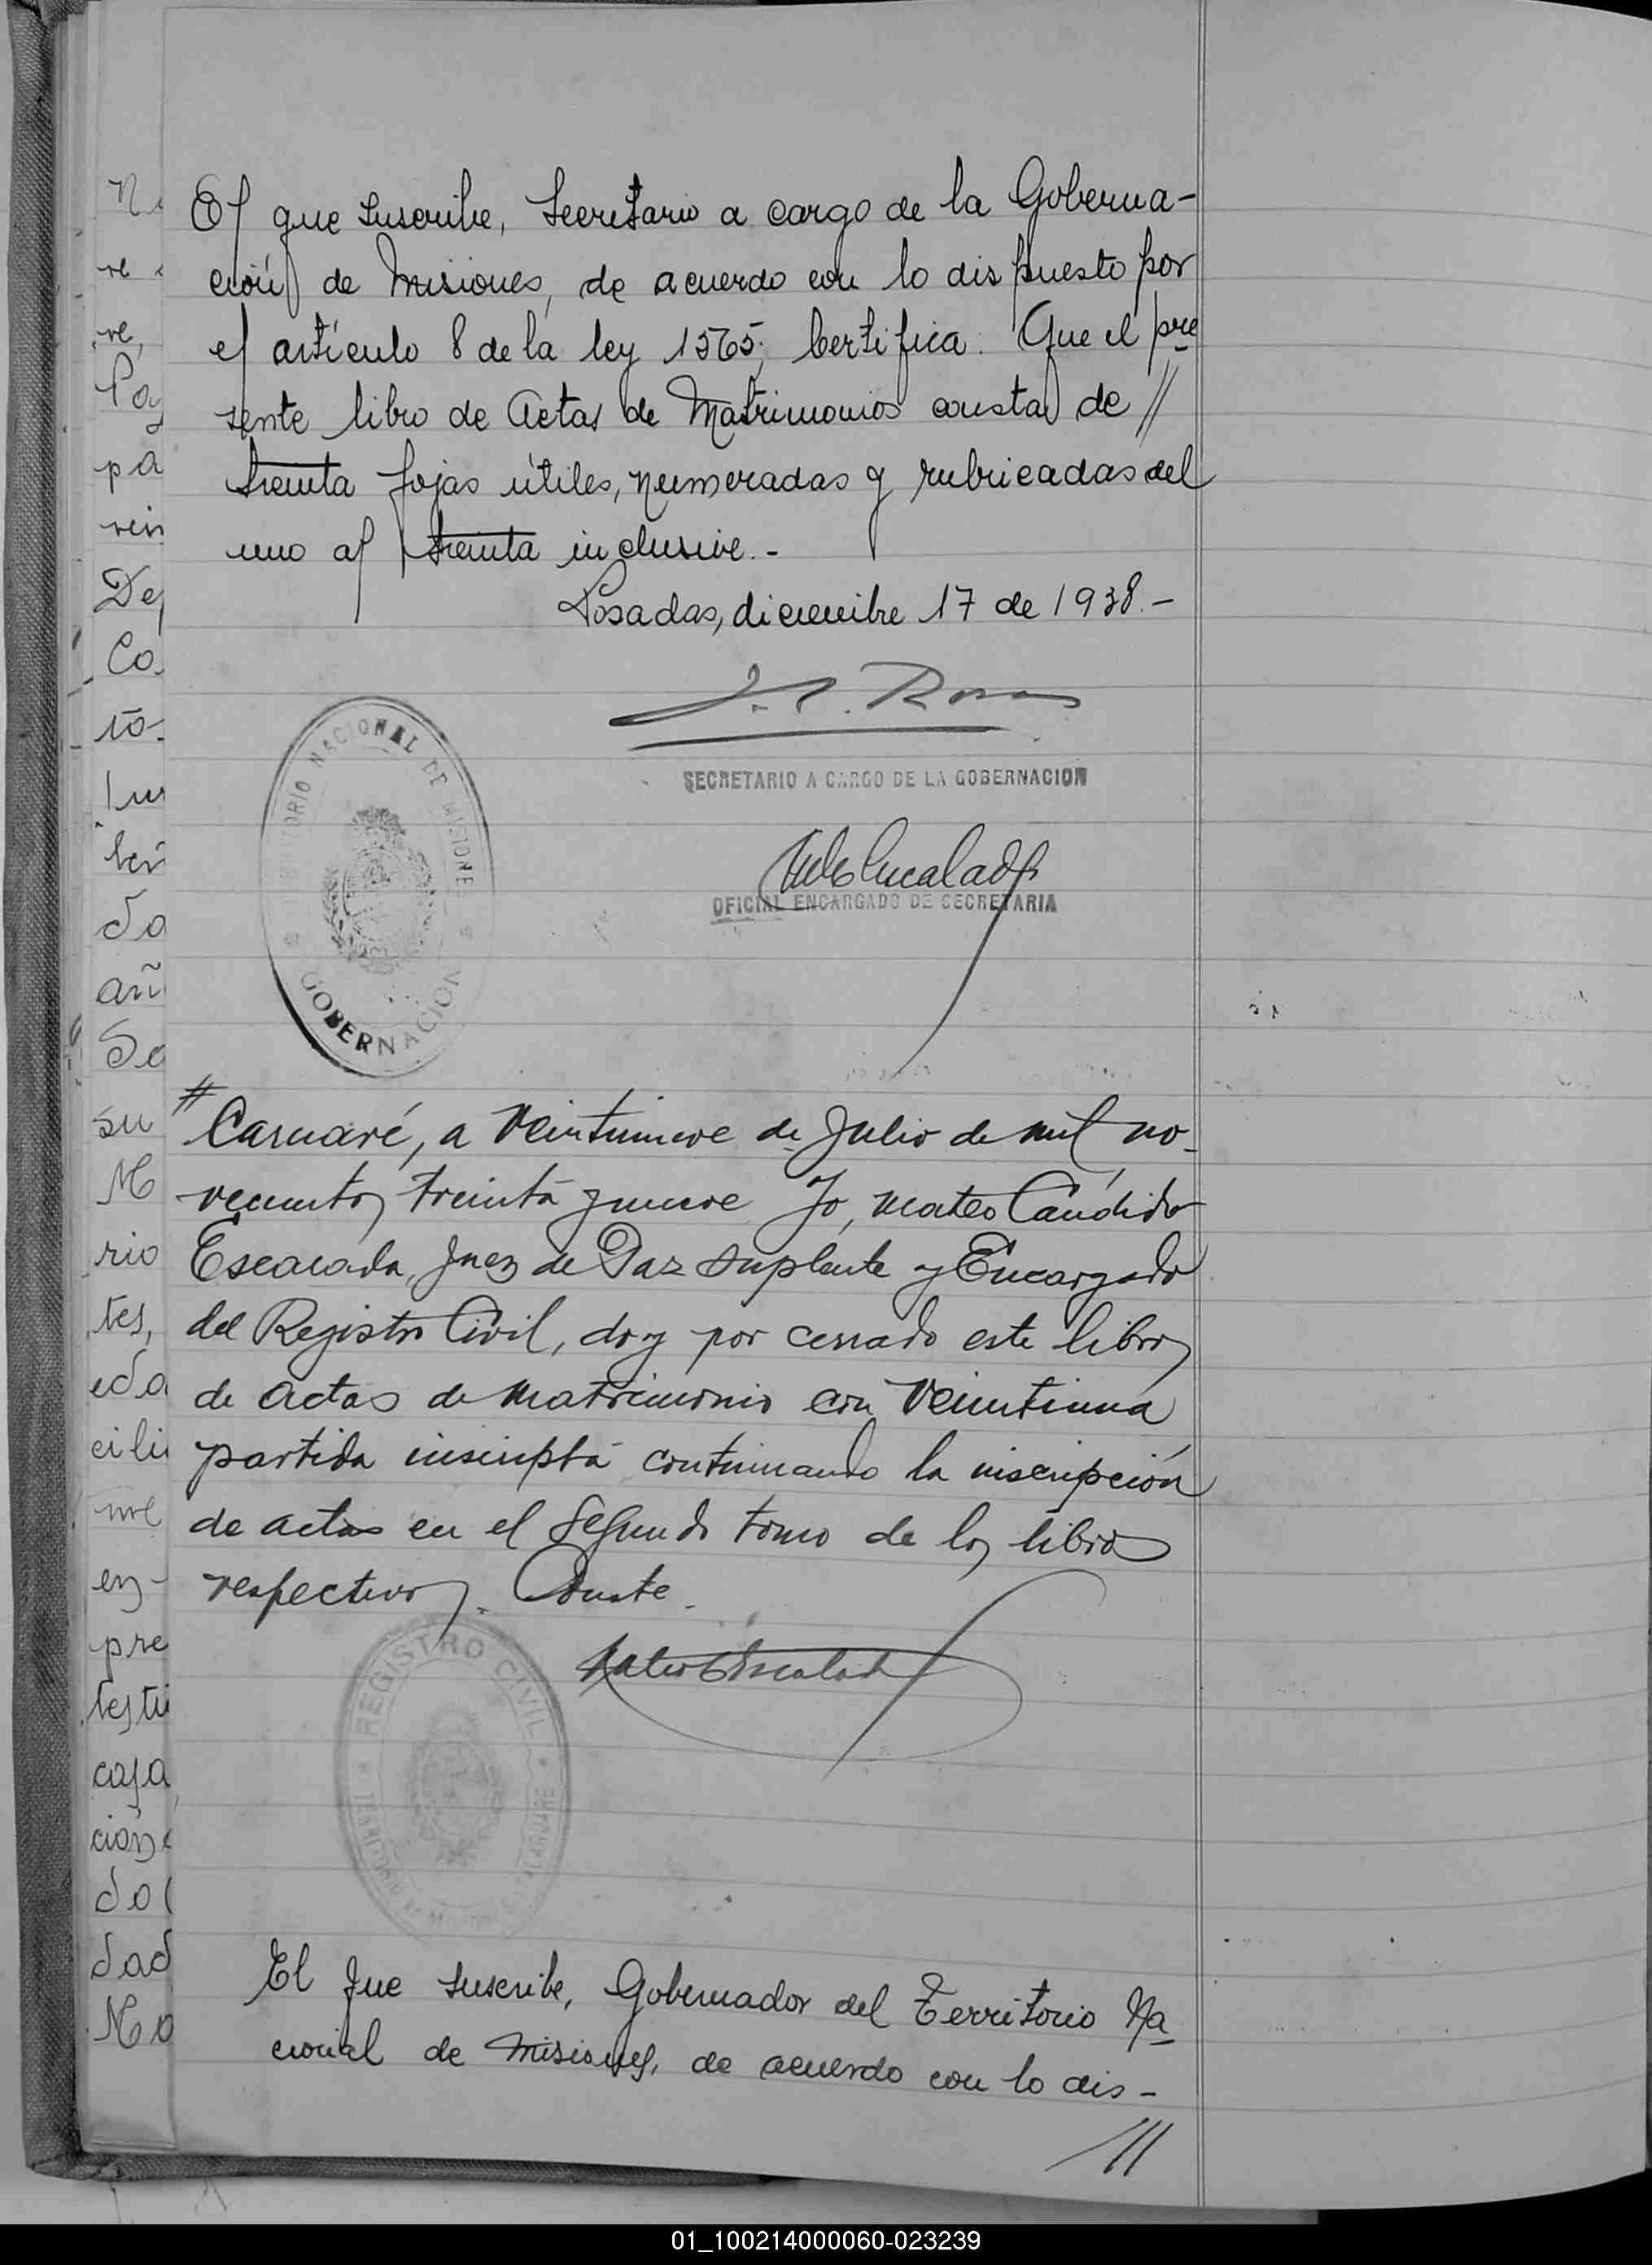 El que suscribe, Secretario a cargo de la Goberna-
ción de Misiones, de acuerdo con lo dispuesto por
el artículo 8 de la ley 1565; Certifica: Que el pre
sente libro de Actas de Matrimonios consta de //
treinta fojas útiles, numeradas y rubricadas del
uno al treinta inclusive.-
Posadas, diciembre 17 de 1938.-
SECRETARIO A CARGO DE LA GOBERNACION
OFICIAL ENCARGADO DE SECRETARIA
TERRITORIO NACIONAL DE MISIONES
GOBERNACION
a veintinueve de Julio de mil no-
vecientos treinta y nueve Yo, Mateo Cándido
Escalada, Juez de Paz suplente y Encargado
del Registro Civil, doy por cerrado este libro
de actas de matrimonio con veintiuna
partida inscripta continuando la inscripción
de actas en el Segundo tomo de los libros
respectivos. Conste.
REGISTRO CIVIL
El que suscribe, Gobernador del Territorio Na
cional de Misiones, de acuerdo con lo dis-
///
01_100214000060-023239